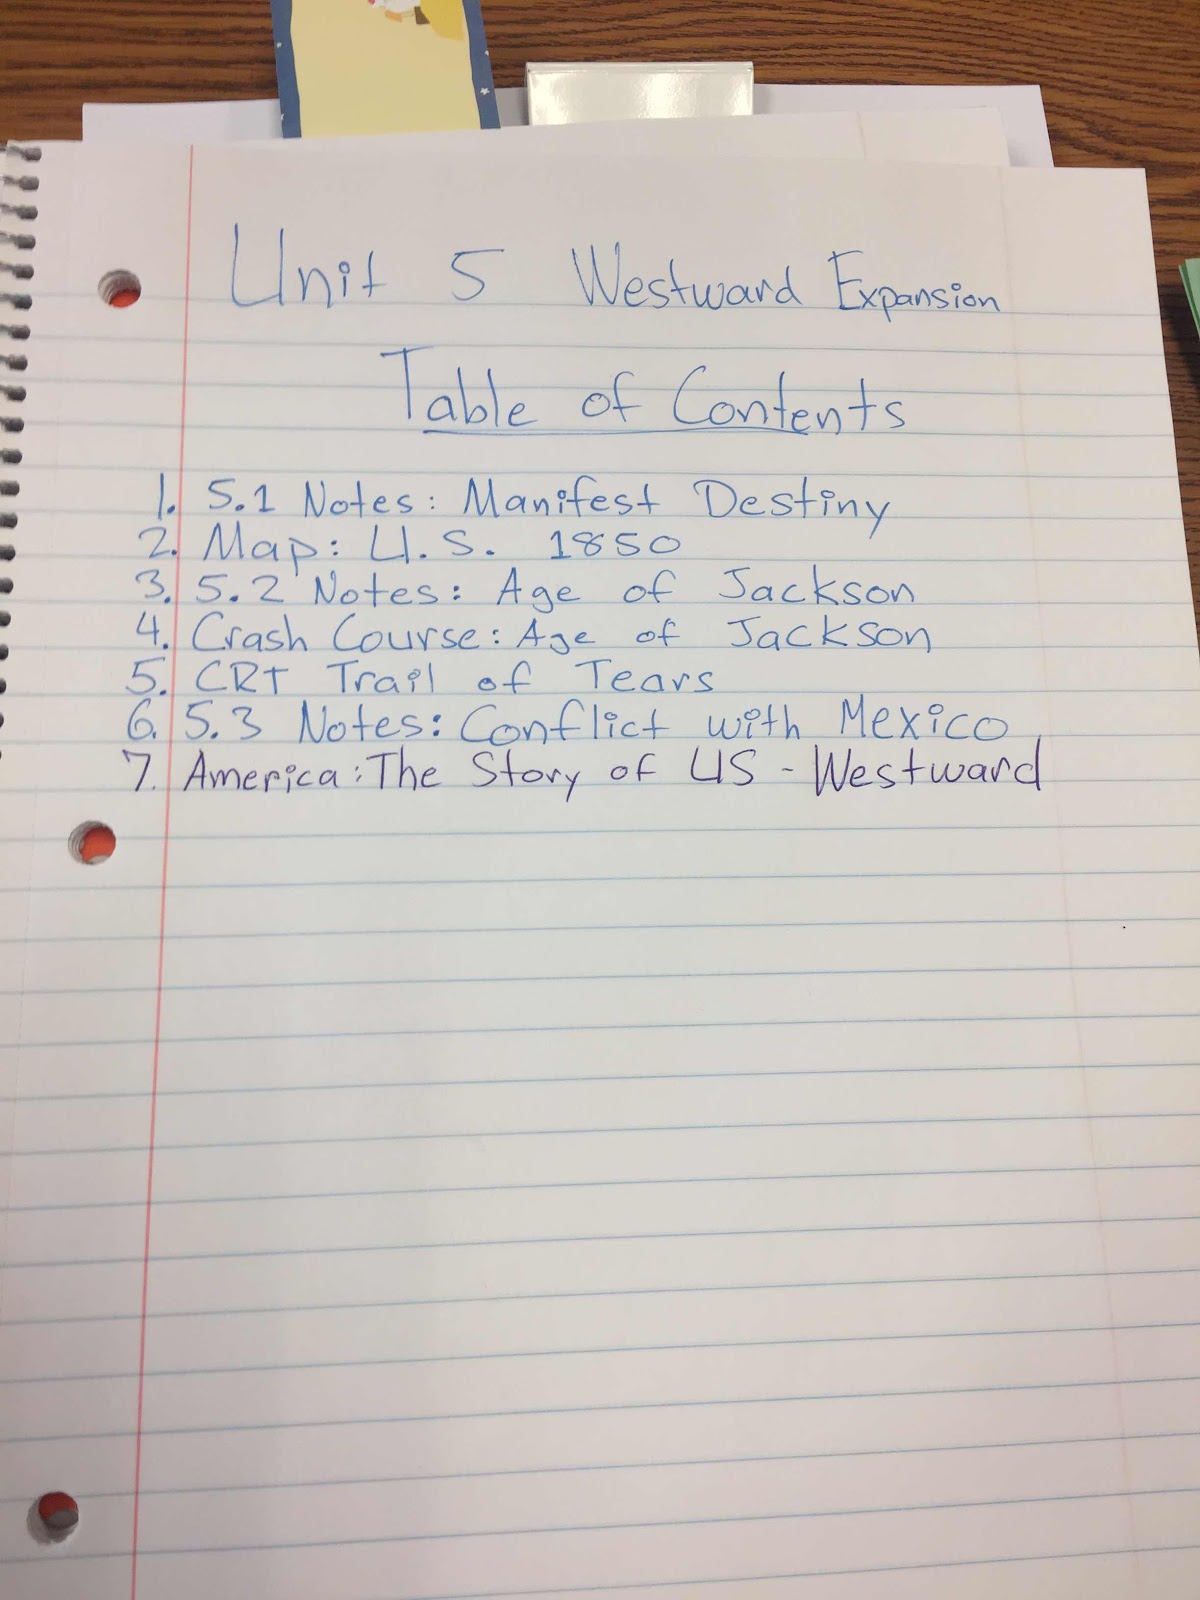 Unit 5 Westward Expansion
Table of Contents
1. 5.1 Notes: Manifest Destiny
2. Map: U.S. 1850
3. 5.2 Notes: Age of Jackson
4. Crash Course: Age of Jackson
5. CRT Trail of Tears
6. 5.3 Notes: Conflict with Mexico
7. America: The Story of US - Westward